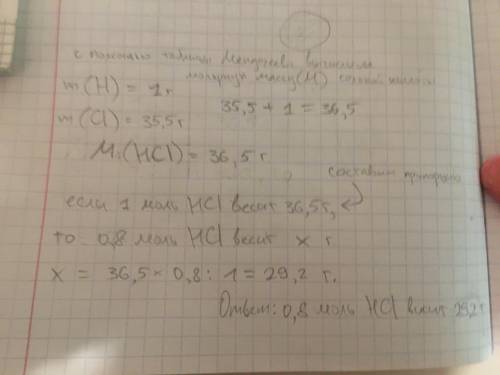 с помощью таблицы Менделеева вычислим
молярную массу (M) соляной кислоты
m(H) = 1 г.
35,5 + 1 = 36,5
m(Cl) = 35,5 г
M.(HCl) = 36,5 г.
составим пропорцию
если 1 моль HCl весит 36,5 г,
то 0,8 моль HCl весит x г
x = 36,5 × 0,8 : 1 = 29,2 г.
Ответ: 0,8 моль HCl весит 29,2 г